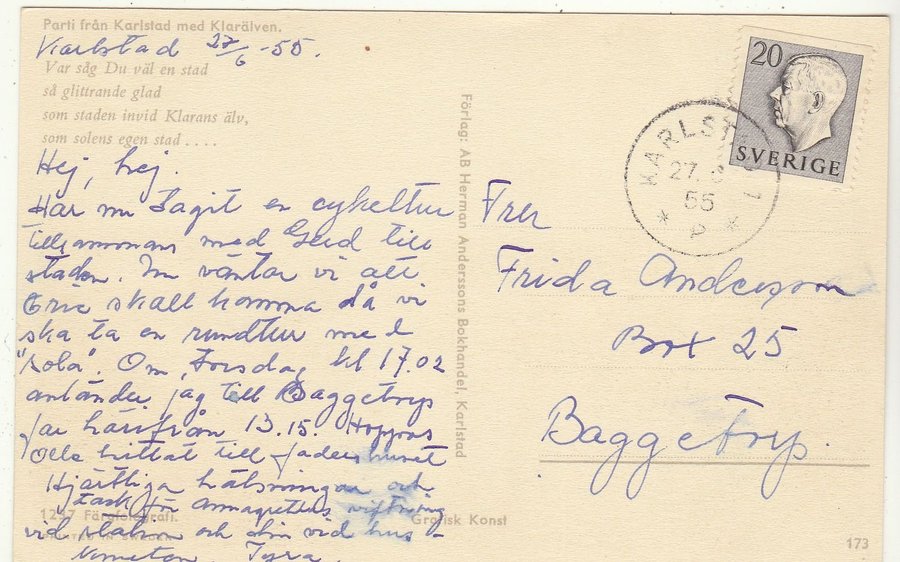 Parti från Karlstad med Klarälven.
Karlstad 27/6 -55.
Var såg Du väl en stad
så glittrande glad
som staden invid Klarans älv,
som solens egen stad . . . .
Hej, hej.
Har nu tagit en cykeltur
tillsammans med Gerd till
staden. Nu väntar vi att
Eric skall komma då vi
ska ta en rundtur med
"Kola". Om Torsdag kl 17.02
anländer jag till Baggetorp
far härifrån 13.15. Hoppas
Olle hittat till
Hjärtliga hälsningar och
tack för viftning
vid station och vid hus
Tyra
1257 Färgfotografi.
PRINTED IN SWEDEN
Förlag: AB Herman Anderssons Bokhandel, Karlstad
Grafisk Konst
20
SVERIGE
KARLSTAD 1
27. 6
55
* P *
Fru
Frida Andersson
Box 25
Baggetorp.
173